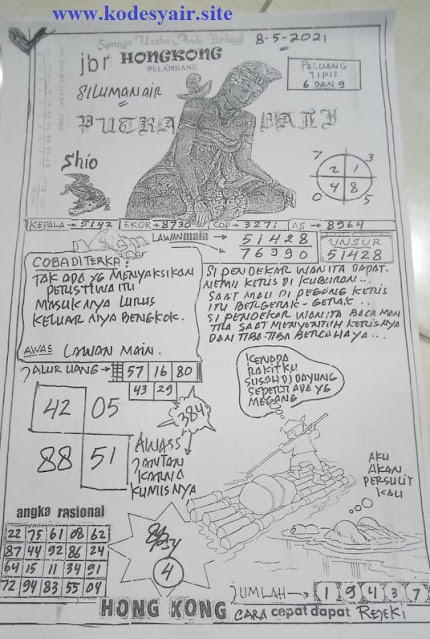 www.kodesyair.site
Semoga Usaha Anda Berhasil
8-5-2021
jbr HONGKONG
PELAMBANG
PELUANG
TIPIS
6 DAN 9
SILUMAN AIR
PUTRA BALI
Shio
7 3
2 1
4 8
0 5
KEPALA = 5142 EKOR = 8730 COP = 3271 AS = 8964
LAWAN mala 51428
76390
UNSUR
51428
COBA DI TERKA:
TAK ADA YG MENYAKSIKAN
PERISTIWA ITU
MASUK NYA LURUS
KELUAR NYA BENGKOK.
AWAS LAWAN MAIN.
SI PENDEKAR WANITA DAPAT
NEMU KERIS DI KUBURAN..
SAAT MAU DI PEGANG KERIS
ITU BERGERAK-GERAK..
SI PENDEKAR WANITA BACA MAN
TRA SAAT MENYENTUH KERISNYA
DAN TIBA-TIBA BERCAHAYA...
JALUR UANG 57 16 80
43 29
384
42 05
88 51
AWASS
JANTAN
KARNA
KUMISNYA
KENAPA
RAKITKU
SUSAH DI DAYUNG
SEPERTI ADA YG
MEGANG
AKU
AKAN
PERSULIT
KAU
angka rasional
22 75 61 08 62
87 44 92 86 24
64 15 11 34 91
72 94 83 55 04
4
JUMLAH 1 9 4 3 7
HONG KONG CARA cepat dapat REJEKI